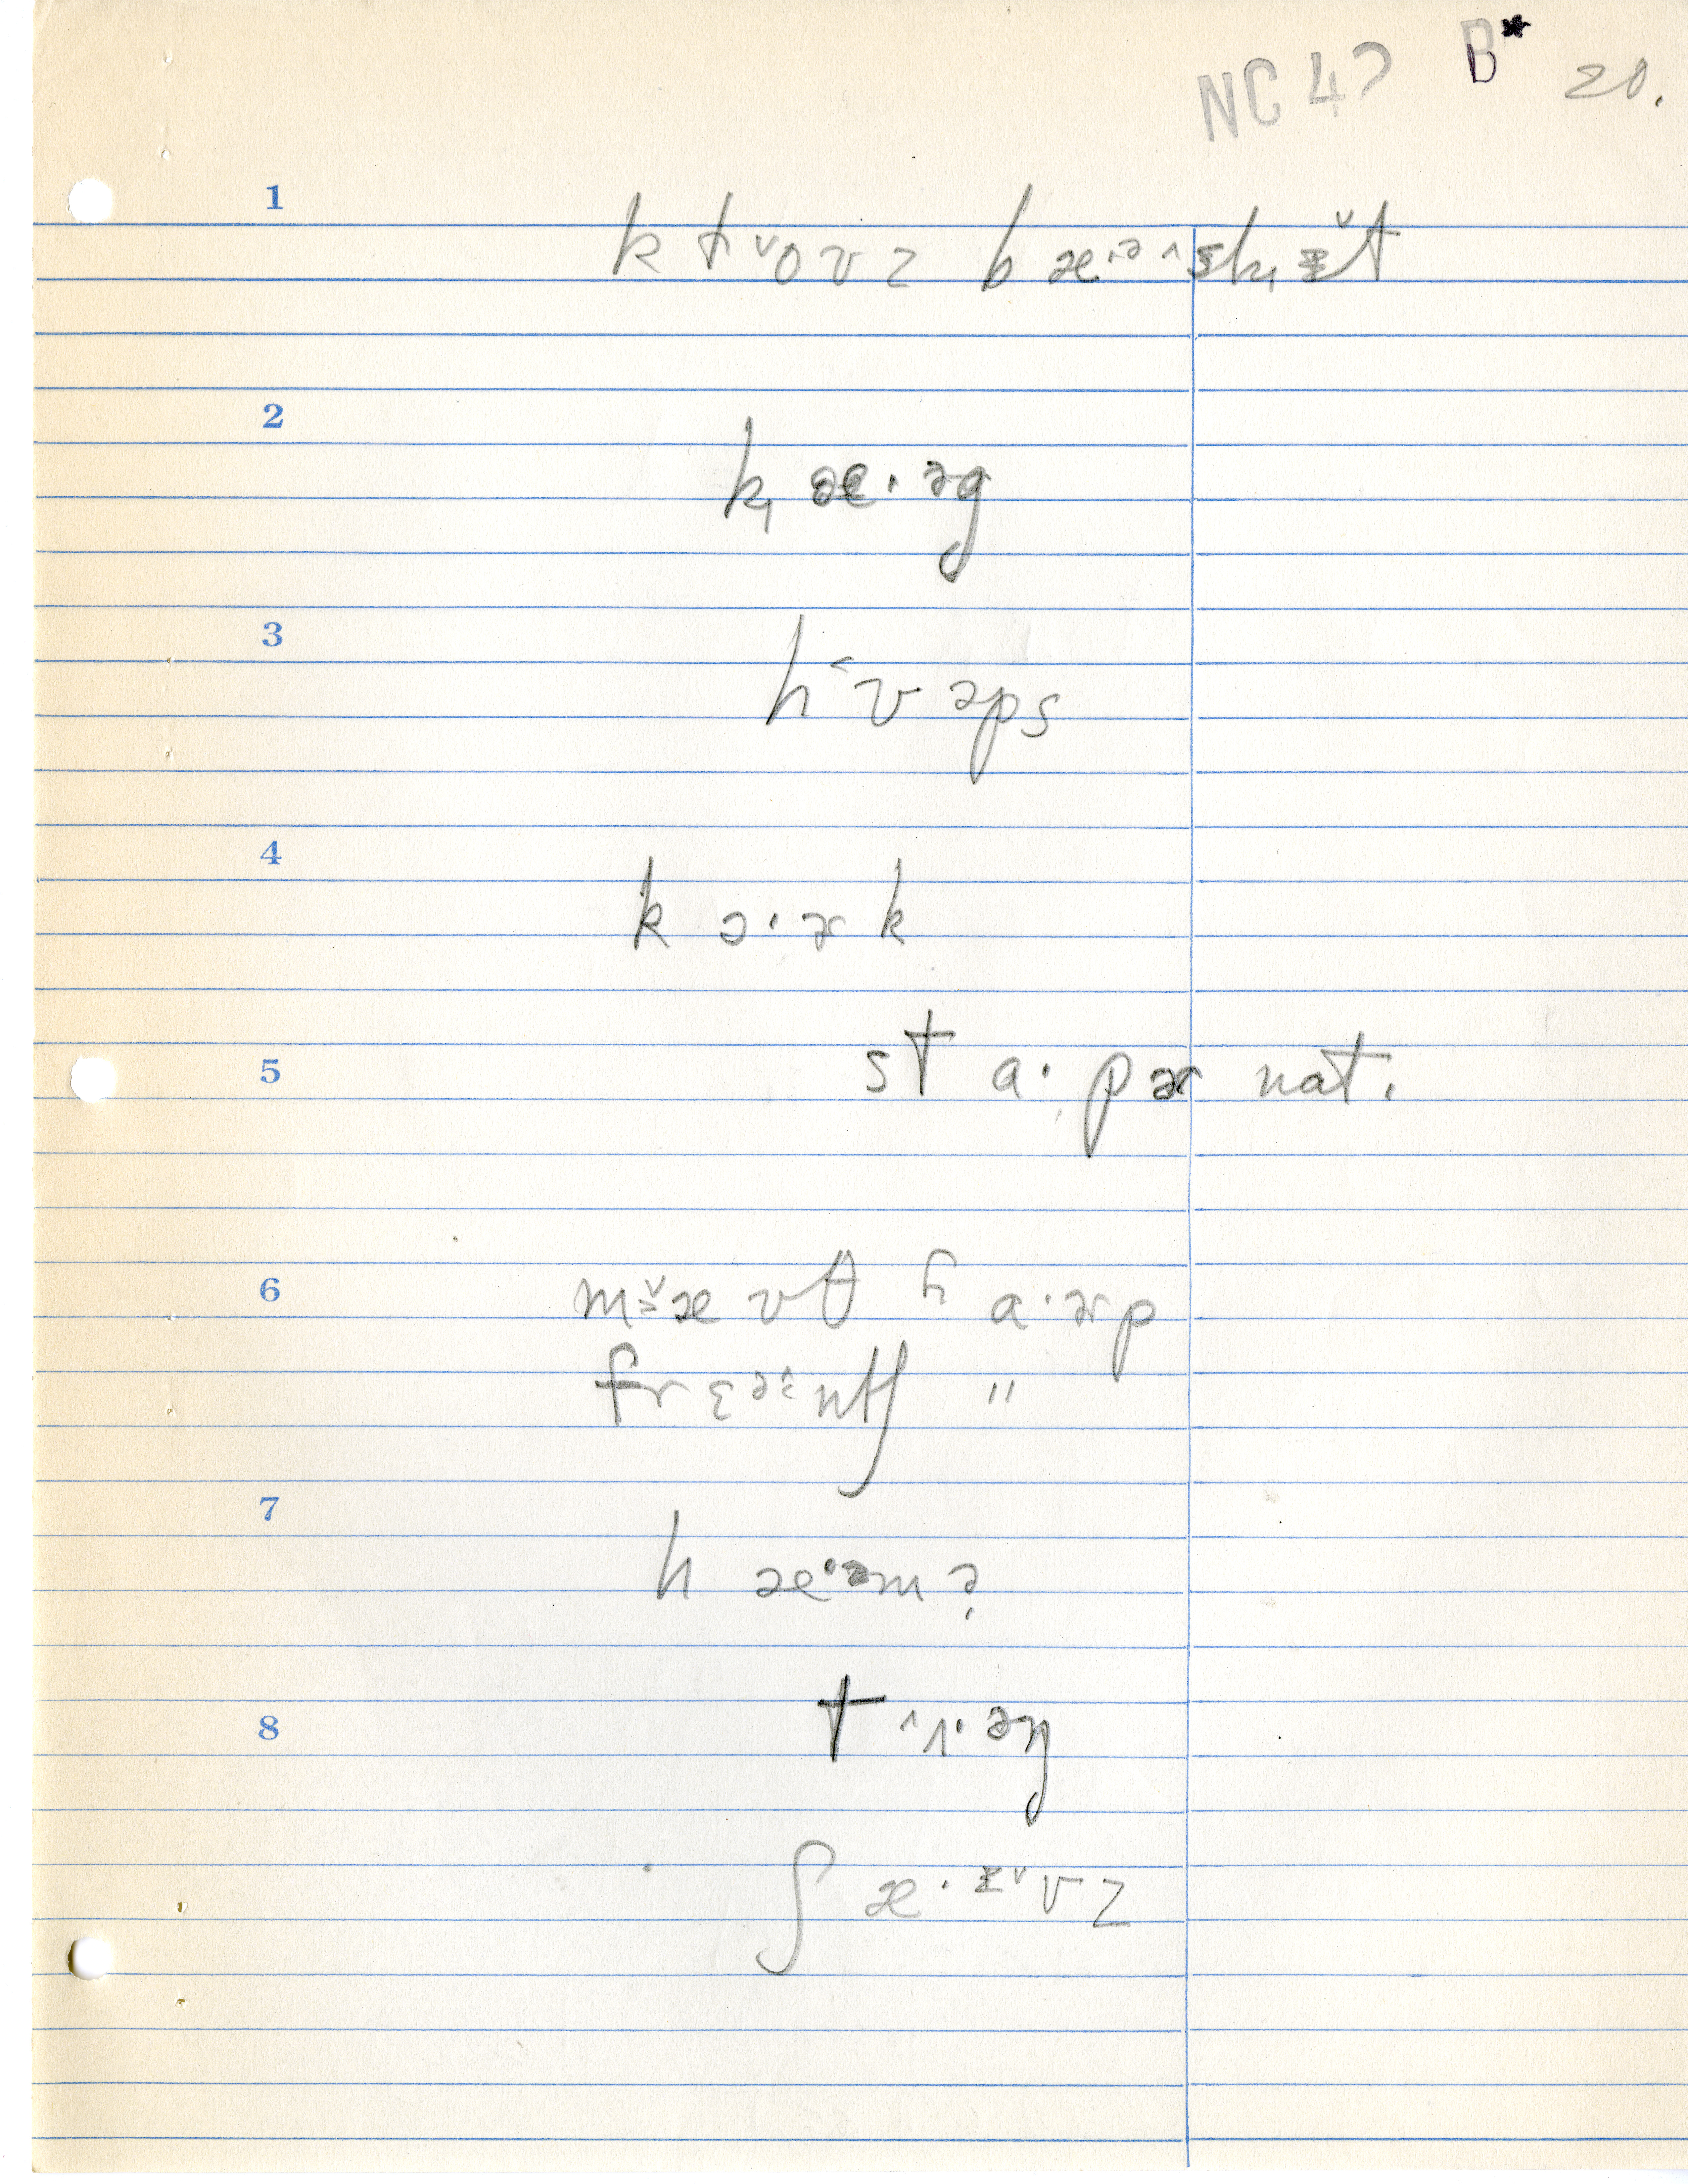 NC 47 B* 20.
1
k t ˅o ʊ z b æ·ə ˄sk̟ ɪ̵̆t
2
k̟ æ· əg
3
h ˂ʊ əps
4
k ɔ· ɚ k
5
st a· pɚ nat.
6
m ˅æ ʊθ h a·ɚp
frɛəntʃ "
7
h æ·əm ?
8
t ˄ɪ· əŋ
ʃ æ· ɪ̵˅ ʊ z